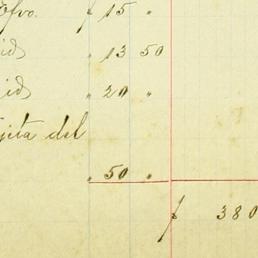 8vo. ƒ 15 "
id. " 13 50
id. " 20 "
del
" 50 "
ƒ 380